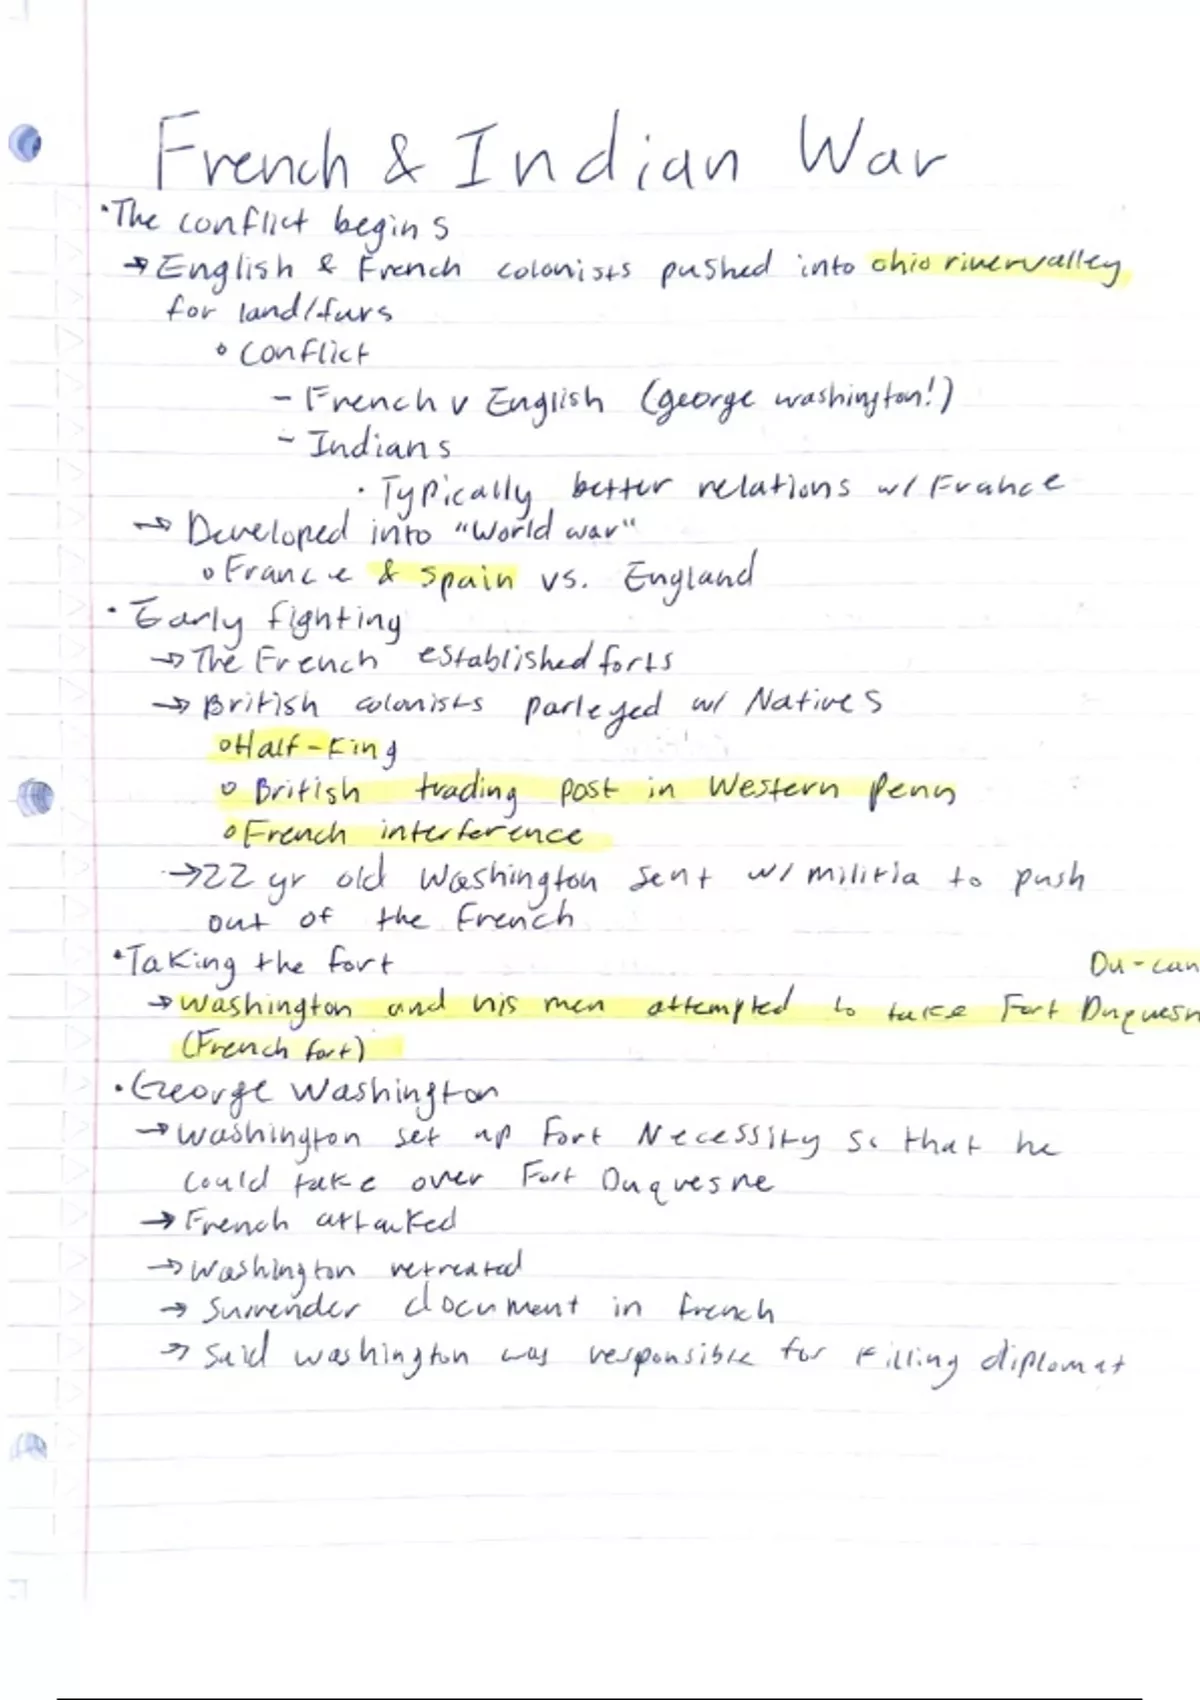 French & Indian War
•The conflict begins
→English & French colonists pushed into ohio rivervalley
for land/furs
◦ Conflict
- French v English (george washington!)
- Indians
• Typically better relations w/ France
→ Developed into "World war"
◦ France & Spain vs. England
• Early fighting
→ The French established forts
→ British colonists parleyed w/ Natives
◦Half-King
◦ British trading post in Western Penn
◦French interference
→22 yr old Washington sent w/ militia to push
out of the French
•Taking the fort
Du-can
→Washington and his men attempted to take Fort Duquesn
(French fort)
•George Washington
→Washington set up Fort Necessity so that he
could take over Fort Duquesne
→ French attacked
→Washington retreated
→ Surrender document in french
→ Said washington was responsible for killing diplomat